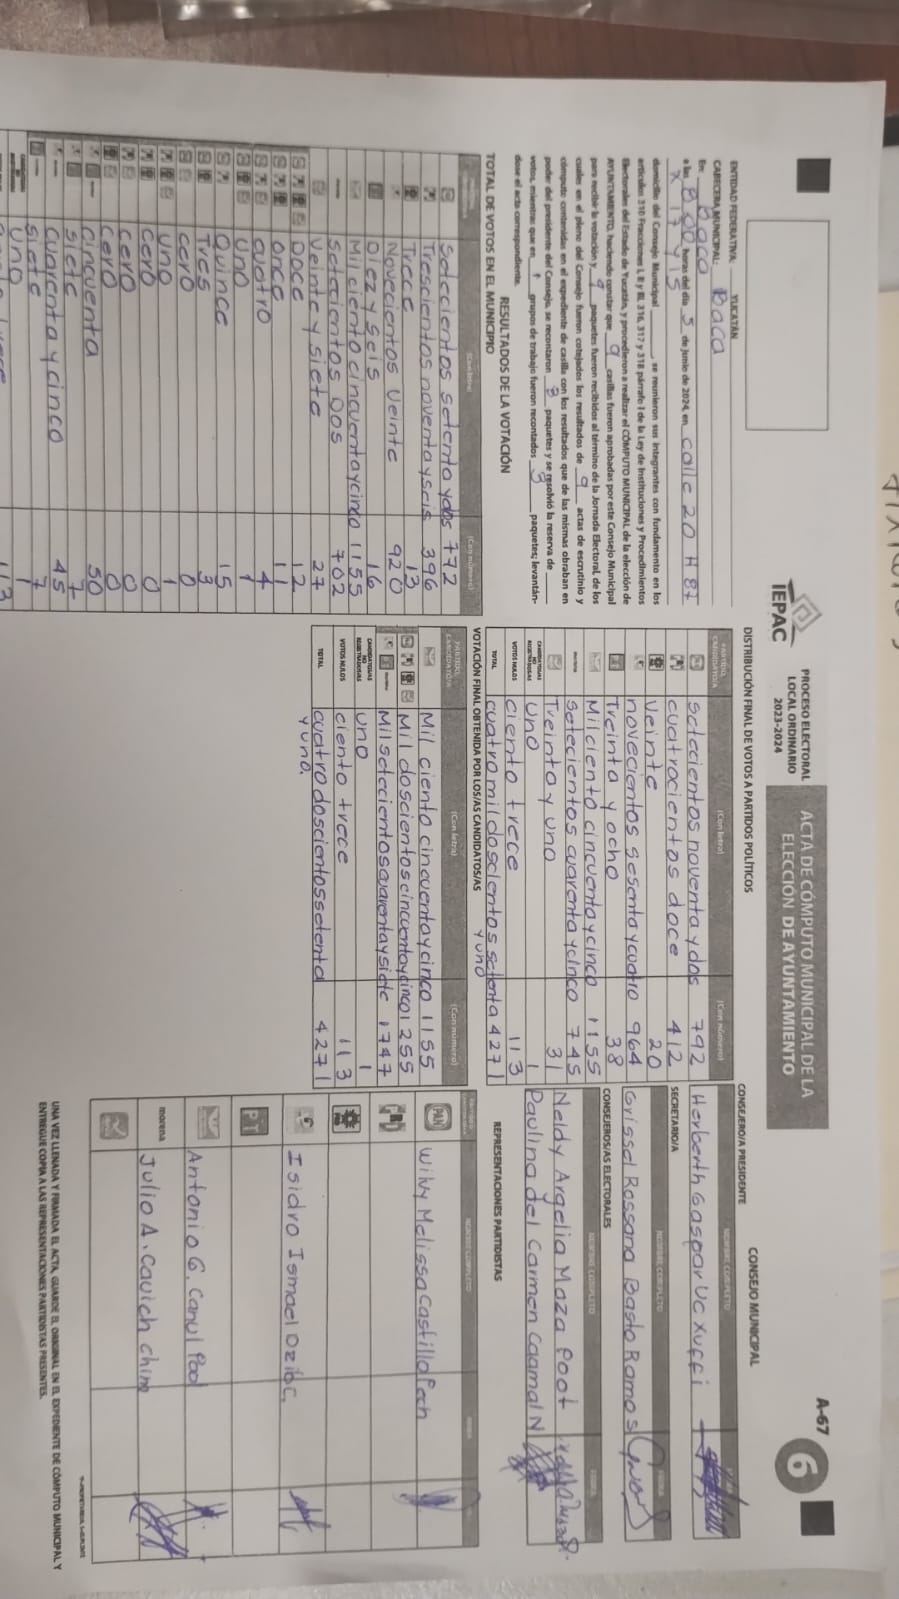 IEPAC
PROCESO ELECTORAL
LOCAL ORDINARIO
2023-2024
ACTA DE CÓMPUTO MUNICIPAL DE LA
ELECCIÓN DE AYUNTAMIENTO
A-67
6
ENTIDAD FEDERATIVA: YUCATÁN
CABECERA MUNICIPAL: Baca
En: Baca
a las 8:00 horas del día 5 de junio de 2024, en calle 20 # 87
x 17 y 15
domicilio del Consejo Municipal se reunieron sus integrantes con fundamento en los
artículos 310 Fracciones I, II y III, 316, 317 y 318 párrafo I de la Ley de Instituciones y Procedimientos
Electorales del Estado de Yucatán, y procedieron a realizar el CÓMPUTO MUNICIPAL de la elección de
AYUNTAMIENTO, haciendo constar que 9 casillas fueron aprobadas por este Consejo Municipal
para recibir la votación y 9 paquetes fueron recibidos al término de la Jornada Electoral, de los
cuales en el pleno del Consejo fueron cotejados los resultados de 9 actas de escrutinio y
cómputo contenidas en el expediente de casilla con los resultados que de las mismas obraban en
poder del presidente del Consejo, se recontaron 3 paquetes y se resolvió la reserva de
votos, mientras que en 1 grupos de trabajo fueron recontados 3 paquetes; levantán-
dose el acta correspondiente.
RESULTADOS DE LA VOTACIÓN
TOTAL DE VOTOS EN EL MUNICIPIO
(Con letra) (Con número)
Setecientos setenta y dos 772
Trescientos noventa y seis 396
Trece 13
Novecientos veinte 920
Diez y seis 16
Mil ciento cincuenta y cinco 1155
morena Setecientos Dos 702
Veinte y siete 27
Doce 12
Once 11
Cuatro 4
Uno 1
Quince 15
Tres 3
Cero 0
Uno 1
Cero 0
Cero 0
Cero 0
Cincuenta 50
Siete 7
Cuarenta y cinco 45
Siete 7
Uno 1
113
DISTRIBUCIÓN FINAL DE VOTOS A PARTIDOS POLÍTICOS
PARTIDO, CANDIDATO/A (Con letra) (Con número)
setecientos noventa y dos 792
cuatrocientos doce 412
Veinte 20
novecientos sesenta y cuatro 964
Treinta y ocho 38
Mil ciento cincuenta y cinco 1155
morena setecientos cuarenta y cinco 745
Treinta y uno 31
CANDIDATURAS NO REGISTRADAS Uno 1
VOTOS NULOS ciento trece 113
TOTAL cuatro mil doscientos setenta 4271
y uno
VOTACIÓN FINAL OBTENIDA POR LOS/AS CANDIDATOS/AS
PARTIDO, CANDIDATO/A (Con letra) (Con número)
Mil ciento cincuenta y cinco 1155
Mil doscientos cincuenta y cinco 1255
morena Mil setecientos cuarenta y siete 1747
CANDIDATURAS NO REGISTRADAS uno 1
VOTOS NULOS ciento trece 113
TOTAL cuatro doscientos setenta 4271
y uno.
CONSEJO MUNICIPAL
CONSEJERO/A PRESIDENTE
NOMBRE COMPLETO
Herberth Gaspar Uc Xuffi
SECRETARIO/A
NOMBRE COMPLETO FIRMA
Grissel Rossana Basto Ramos
CONSEJEROS/AS ELECTORALES
NOMBRE COMPLETO FIRMA
Neldy Argelia Maza Poot
Paulina del Carmen Caamal N
REPRESENTACIONES PARTIDISTAS
NOMBRE COMPLETO
PAN Wilvy Melissa Castillo Pech
PRI
PRD
Isidro Ismael Dzib C.
PT
Antonio G. Canul Pool
morena Julio A. Cauich Chim
UNA VEZ LLENADA Y FIRMADA EL ACTA, GUARDE EL ORIGINAL EN EL EXPEDIENTE DE CÓMPUTO MUNICIPAL Y
ENTREGUE COPIA A LAS REPRESENTACIONES PARTIDISTAS PRESENTES.